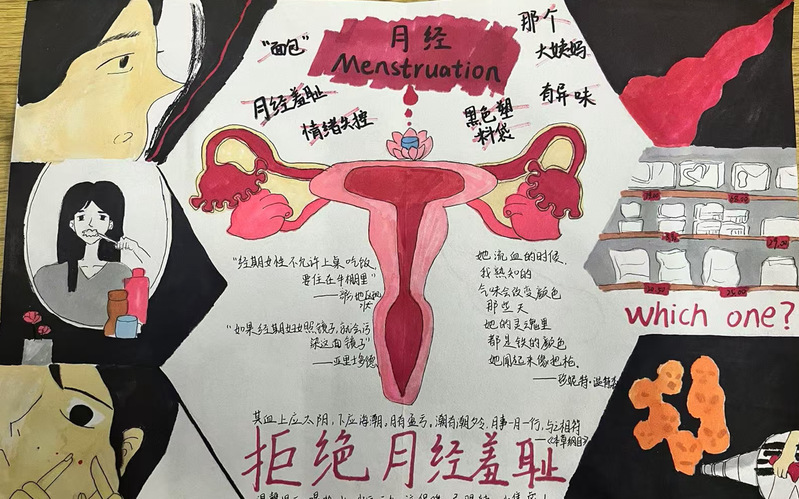 月经
Menstruation
"面包"
那个
大姨妈
有异味
月经羞耻
情绪失控
黑色塑
料袋
"经期女性不允许上桌吃饭,
要住在牛棚里"
"如果经期妇女照镜子,就会污
染这面镜子"
——亚里士多德
她流血的时候,
我熟知的
气味会改变颜色
那些天
她的灵魂里
都是铁的颜色
她闻起来像把枪.
which one?
其血上应太阴,下应海潮,月有盈亏,潮有朝夕,月事一月一行,与之相符
——《本草纲目》
拒绝月经羞耻